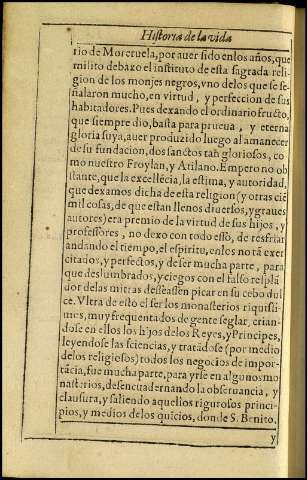 Historia de la vida
rio de Moreruela, por auer sido en los años, que
milito debaxo el instituto de esta sagrada reli
gion de los monjes negros, vno de los que se se-
ñalaron mucho, en virtud, y perfeccion de sus
habitadores. Pues dexando el ordinario fructo,
que siempre dio, basta para prueua, y eterna
gloria suya, auer produzido luego al amanecer
de su fundacion, dos sanctos tan gloriosos, co
mo nuestro Froylan, y Atilano. Empero no ob
stante, que la excellēcia, la estima, y autoridad,
que dexamos dicha de esta religion (y otras cie
mil cosas, de que estan llenos diuersos, y graues
autores) era premio de la virtud de sus hijos, y
professores, no dexo con todo esso, de resfriar
andando el tiempo, el espiritu, en los no tā exer
citados, y perfectos, y de ser mucha parte, para
que deslumbrados, y ciegos con el falso resplā
dor de las mitras desseassen picar en su cebo dul
ce. Vltra de esto el ser los monasterios riquissi-
mos, muy frequentados de gente seglar, crian-
dose en ellos los hijos de los Reyes, y Principes,
leyendose las sciencias, y tratādose (por medio
de los religiosos) todos los negocios de impor-
tācia, fue mucha parte, para yrse en algunos mo
nasterios, desencuadernando la obseruancia, y
clausura, y saliendo aquellos rigurosos princi-
pios, y medios de los quicios, donde S. Benito,
y